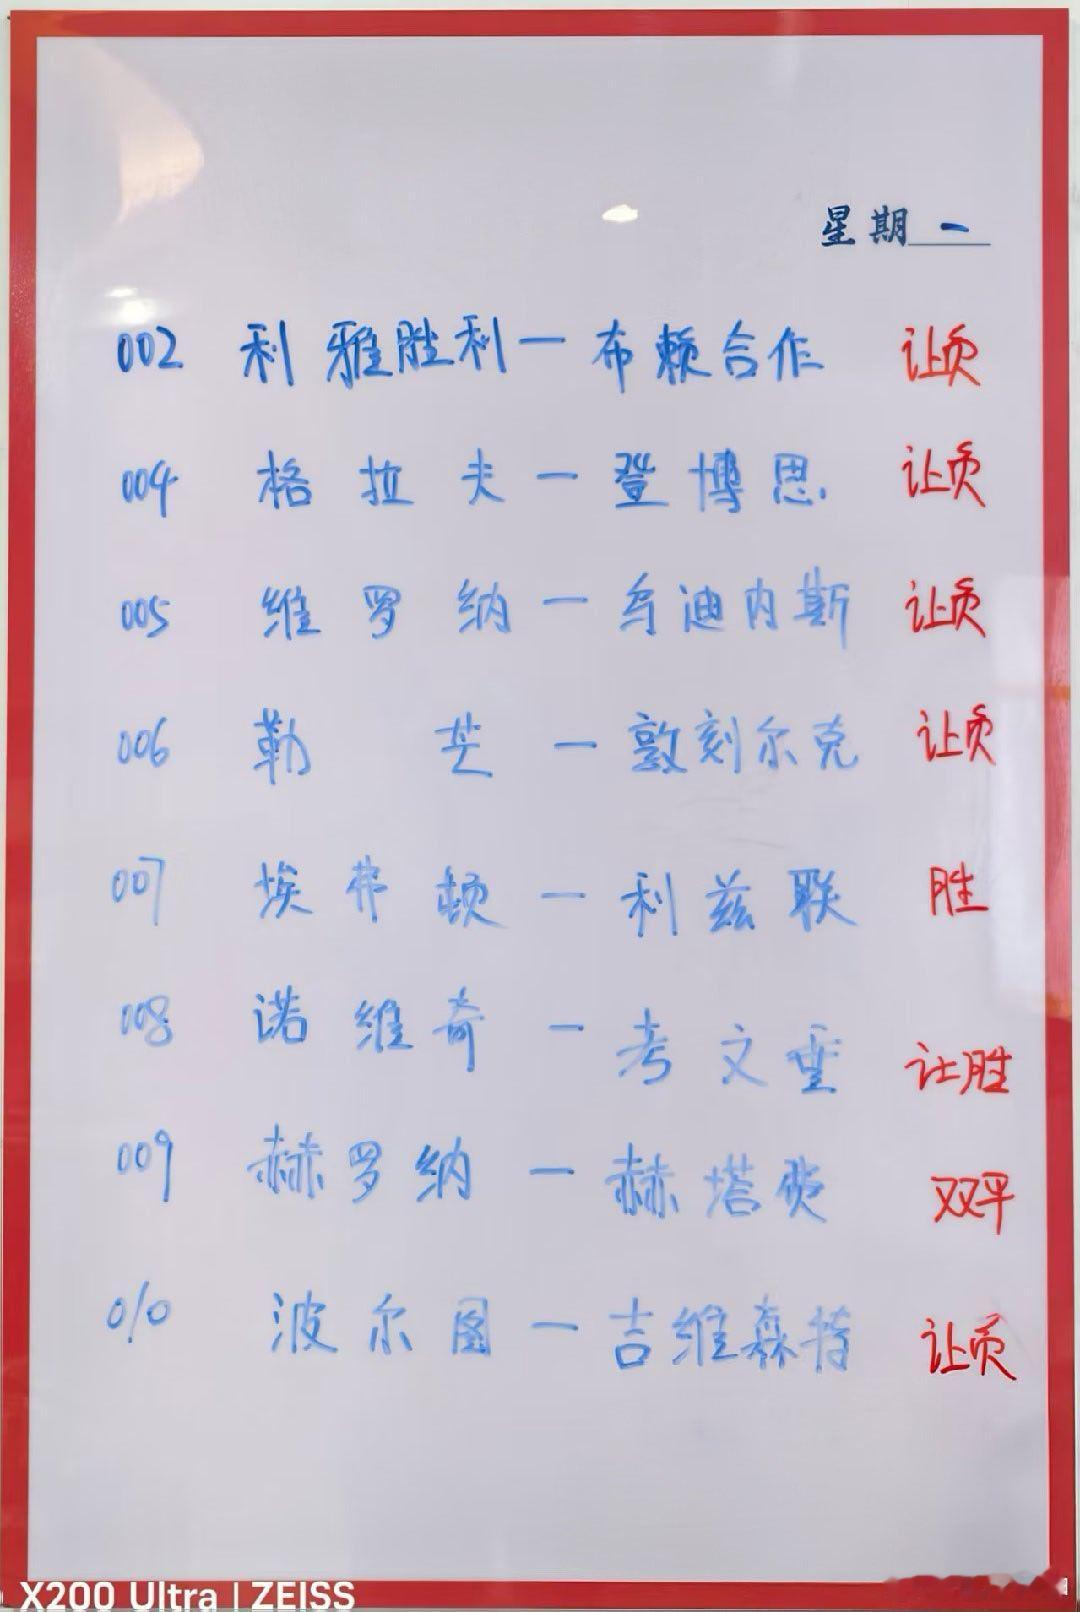 星期一
002 利雅胜利一布赖合作 让负
004 格拉夫一登博思 让负
005 维罗纳一乌迪内斯 让负
006 勒芒一敦刻尔克 让负
007 埃弗顿一利兹联 胜
008 诺维奇一考文垂 让胜
009 赫罗纳一赫塔费 双平
010 波尔图一吉维森特 让负
X200 Ultra | ZEISS